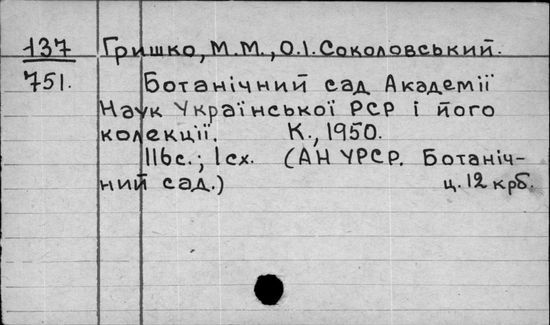 137 Гришко, М.М., О.І. Соколовський.
751. Ботанічний сад Академії
Наук Української РСР і його
колекції. К., 1950.
116с.; 1сх. (АН УРСР. Ботаніч-
ний сад.) ц. 12 крб.